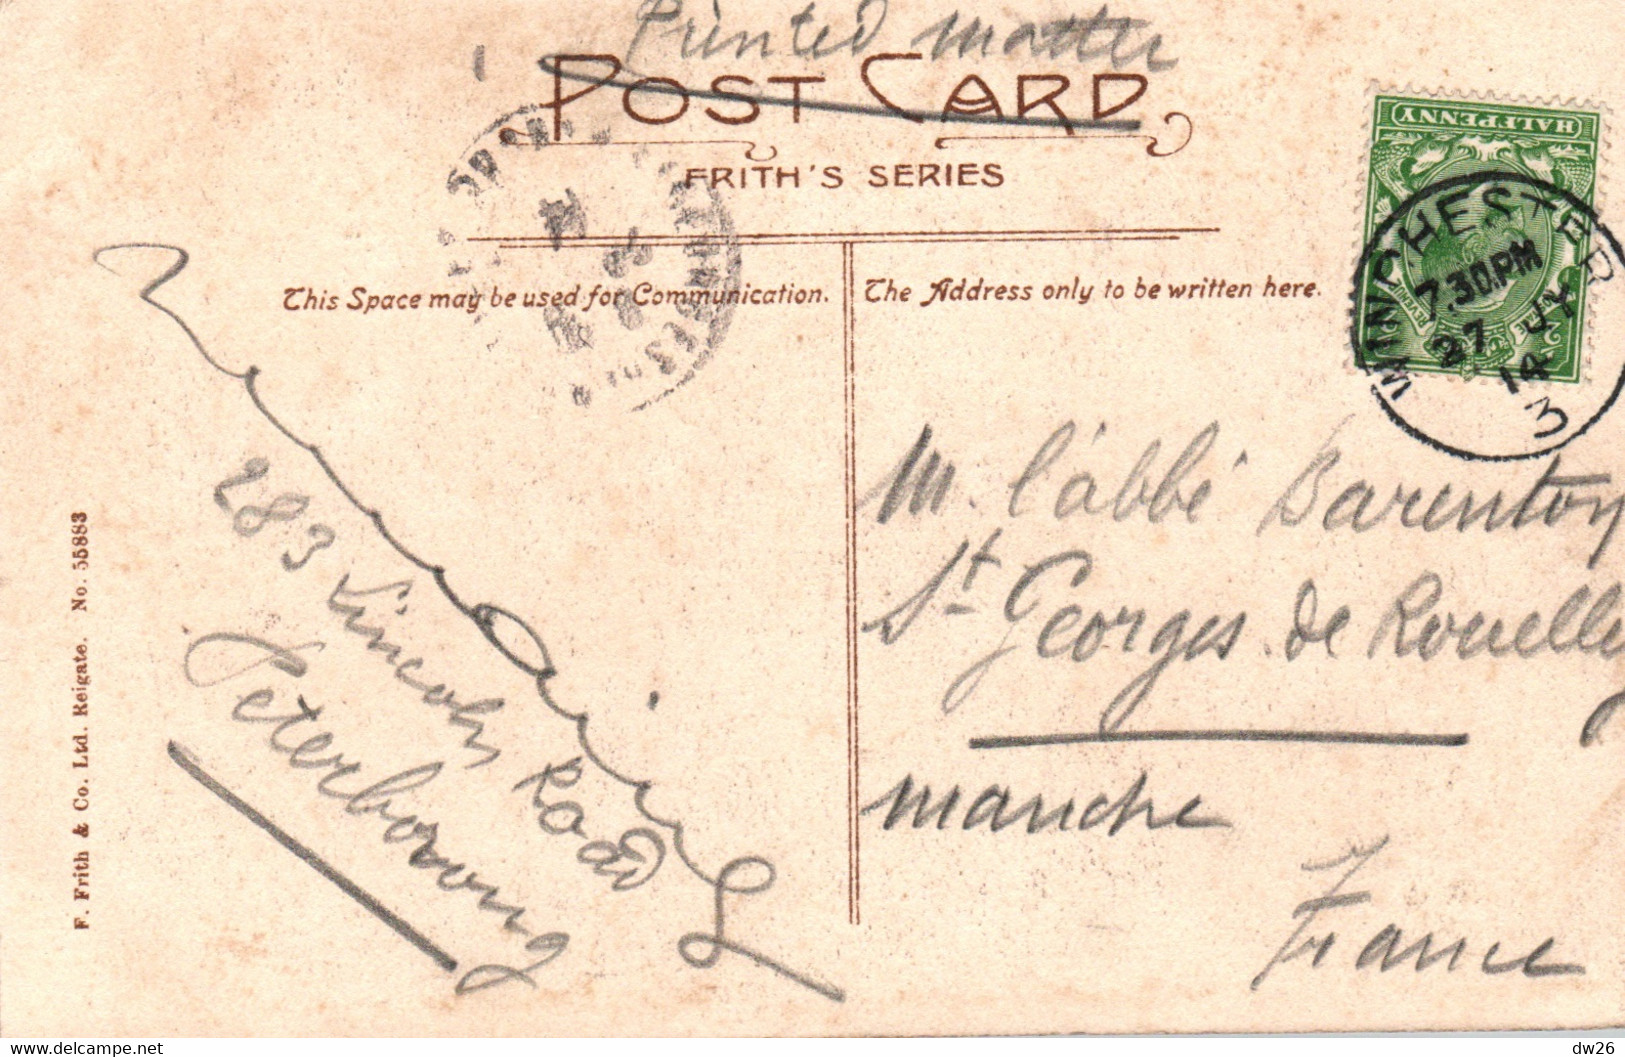 Printed matter
POST CARD
FRITH'S SERIES
HALFPENNY
WINCHESTER
7.30.PM
27 JY
14
3
This Space may be used for Communication.
The Address only to be written here.
283 Lincoln Road
Peterborough
M. l'abbé Barenton
St Georges de Rouelley
manche
France
F. Frith & Co. Ltd. Reigate. No. 55883
dw26